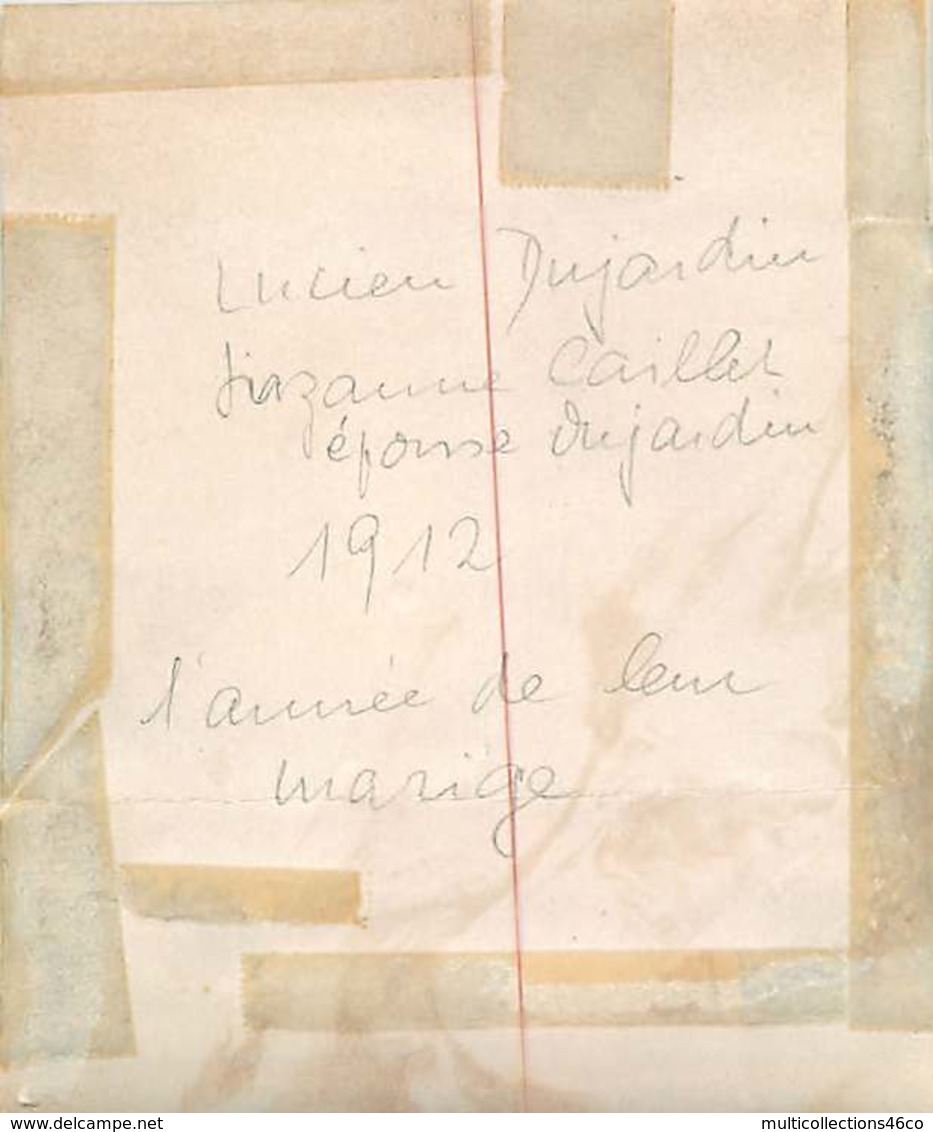 Lucien Dujardin
Suzanne Caillet
épouse Dujardin
1912
l'année de leur
mariage
www.delcampe.net
multicollections46co